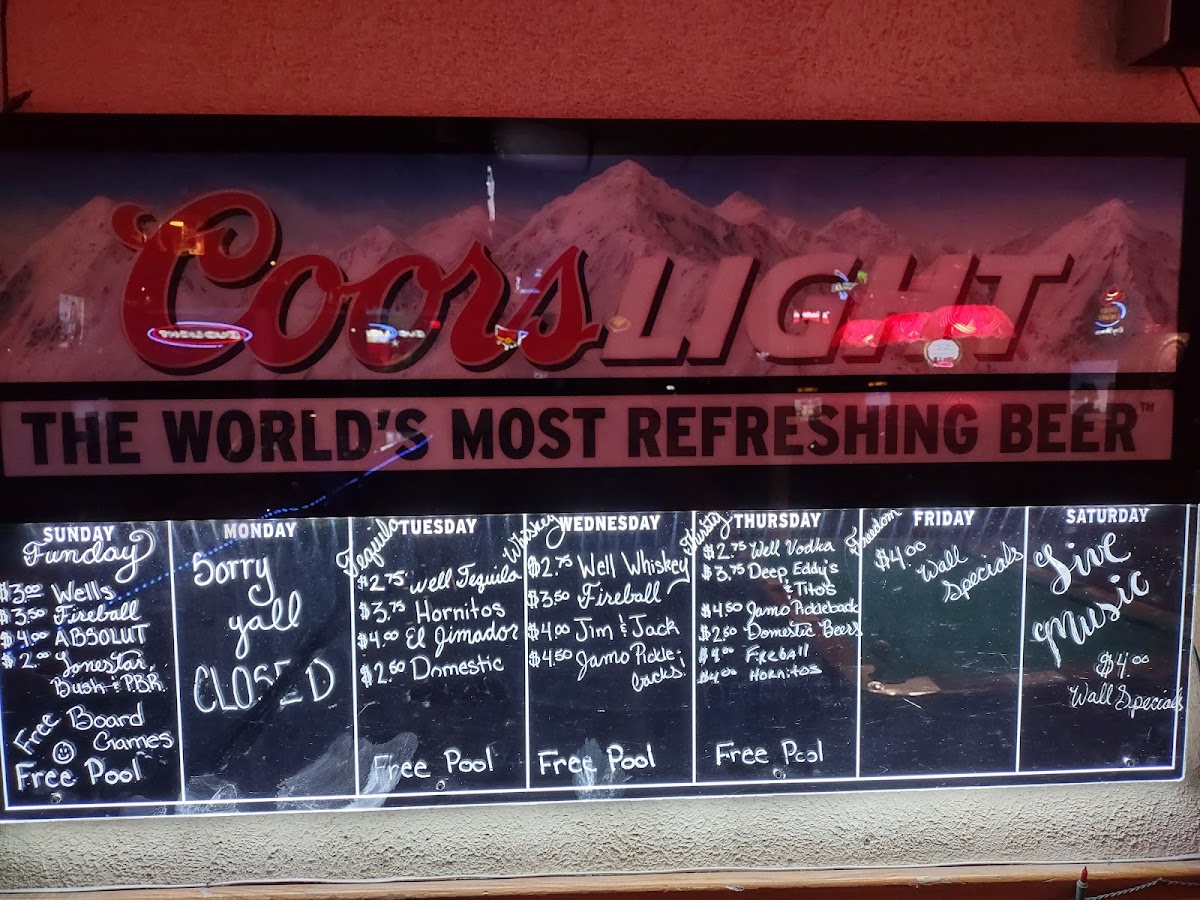 Coors LIGHT
THE WORLD'S MOST REFRESHING BEER™
SUNDAY
Funday
$3.00 Wells
$3.50 Fireball
$4.00 ABSOLUT
$2.00 Lonestar,
Bush & PBR
Free Board
Games
Free Pool
MONDAY
Sorry
yall
CLOSED
Tequila TUESDAY
$2.75 well Tequila
$3.75 Hornitos
$4.00 El Jimador
$2.50 Domestic
Free Pool
Whiskey WEDNESDAY
$2.75 Well Whiskey
$3.50 Fireball
$4.00 Jim & Jack
$4.50 Jamo Pickle-
backs!
Free Pool
Thirsty THURSDAY
$2.75 Well Vodka
$3.75 Deep Eddy's
& Titos
$4.50 Jamo Pickleback
$2.50 Domestic Beers
Fireball
$4.00 Hornitos
Free Pool
Freedom FRIDAY
$4.00 Wall
Specials
SATURDAY
Live
Music
$4.00
Wall Specials